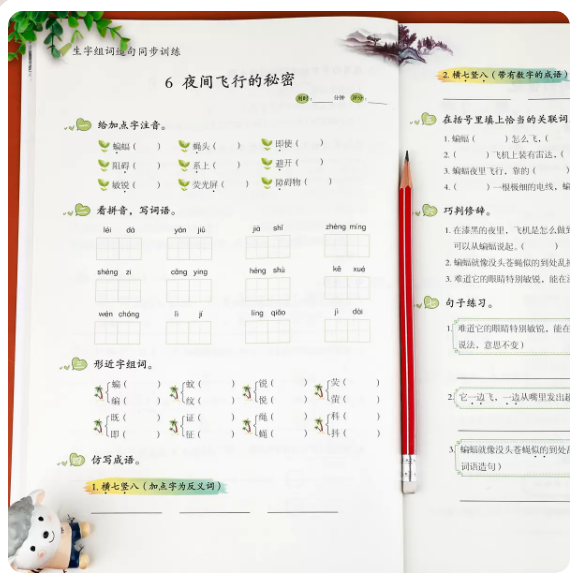 生字组词造句同步训练
6 夜间飞行的秘密
用时:____分钟 评分:____
给加点字注音。
蝙蝠( ) 蝇头( ) 即使( )
阻碍( ) 系上( ) 避开( )
敏锐( ) 荧光屏( ) 障碍物( )
看拼音,写词语。
léi dá yán jiū jià shǐ zhèng míng
shéng zi cāng ying héng shù kē xué
wén chóng lì jí líng qiǎo jì dài
形近字组词。
蝠( ) 蚊( ) 锐( ) 荧( )
编( ) 纹( ) 悦( ) 萤( )
既( ) 证( ) 绳( ) 科( )
即( ) 征( ) 蝇( ) 抖( )
仿写成语。
1.横七竖八(加点字为反义词)
2.横七竖八(带有数字的成语)
在括号里填上恰当的关联词
1.蝙蝠( )怎么飞,(
2.( )飞机上装有雷达,(
3.蝙蝠夜里飞行,靠的(
4.( )一根极细的电线,蝙
巧判修辞。
1.在漆黑的夜里,飞机是怎么做到
可以从蝙蝠说起。(
2.蝙蝠就像没头苍蝇似的到处乱
3.难道它的眼睛特别敏锐,能在
句子练习。
1.难道它的眼睛特别敏锐,能在
说法,意思不变)
2.它一边飞,一边从嘴里发出
3.蝙蝠就像没头苍蝇似的到处
词语造句)